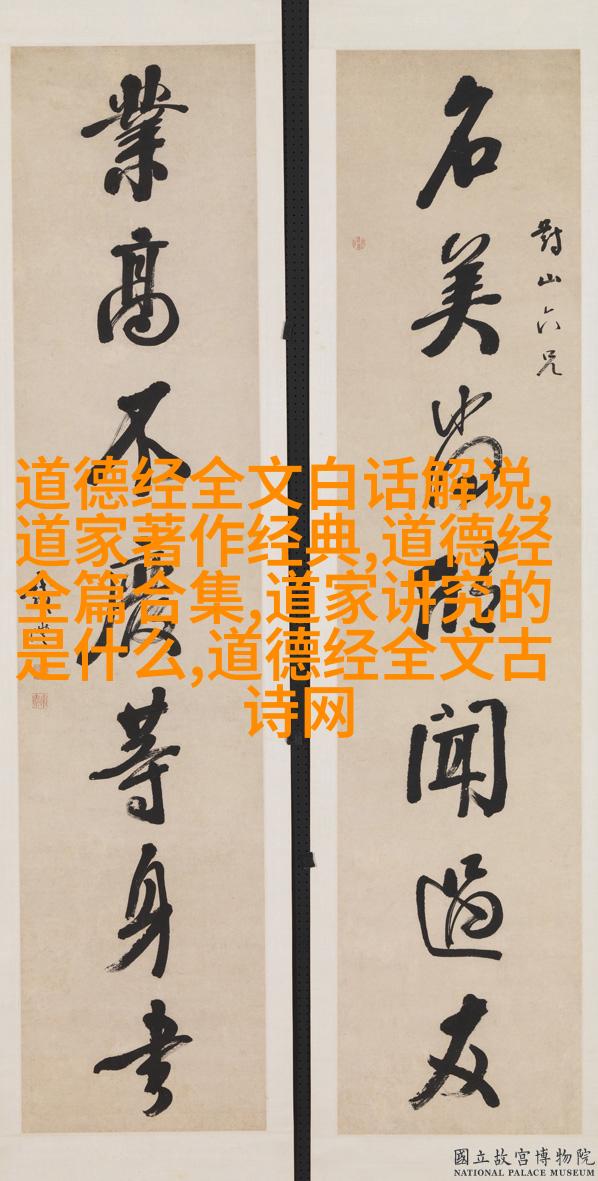 對山六兄
名美尚聞過友
業高不廢等身書
道德经全文白话解说,
道家著作经典,道德经
全篇合集,道家讲究的
是什么,道德经全文古
诗网
國立故宮博物院
NATIONAL PALACE MUSEUM